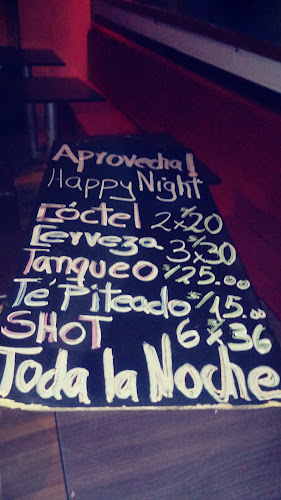 Aprovecha!
Happy Night
Cóctel 2x S/20
Cerveza 3x S/30
Tanqueo S/25.00
Té Piteado S/15.00
SHOT 6 x S/36
Toda la Noche